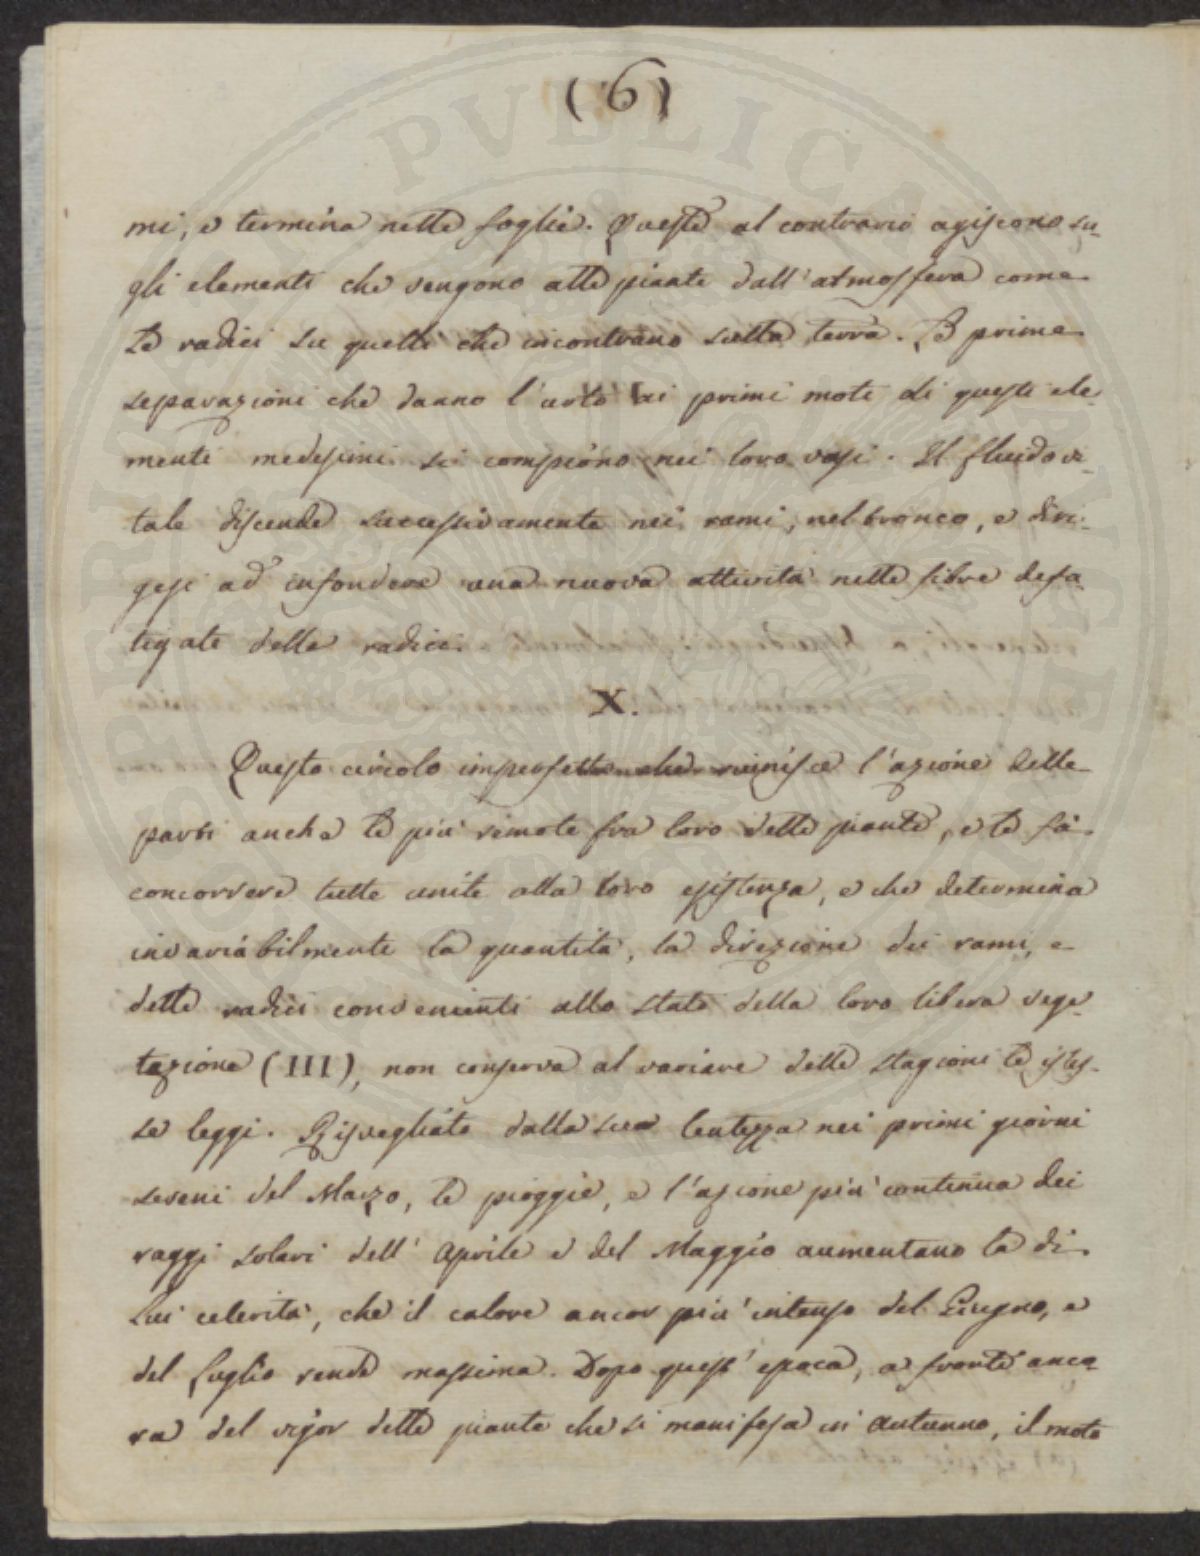 (6)
mi, e termina nelle foglie. Queste al contrario agiscono su-
gli elementi che vengono alle piante dall'atmosfera come
le radici su quelli che incontrano sulla terra. Le prime
separazioni che danno l'urto ai primi moti di questi ele-
menti medesimi si compiono nei loro vasi. Il fluido vi-
tale discende successivamente nei rami, nel tronco, e diri-
gesi ad infondere una nuova attività nelle fibre defa-
tigate delle radici.
X.
Questo circolo imperfetto che riunisce l'azione delle
parti anche le più rimote fra loro delle piante, e le fà
concorrere tutte unite alla loro esistenza, e che determina
invariabilmente la quantità, la direzione dei rami, e
delle radici convenienti allo stato della loro libera vege-
tazione (III), non conserva al variare delle stagioni le istes-
se leggi. Risvegliato dalla sua lentezza nei primi giorni
sereni del Marzo, le pioggie, e l'azione più continua dei
raggi solari dell'Aprile e del Maggio aumentano la di
lui celerità, che il calore ancor più intenso del Giugno, e
del Luglio rende massima. Dopo quest'epoca, a fronte anco-
ra del vigor delle piante che si manifesta in Autunno, il moto
PUBLICA